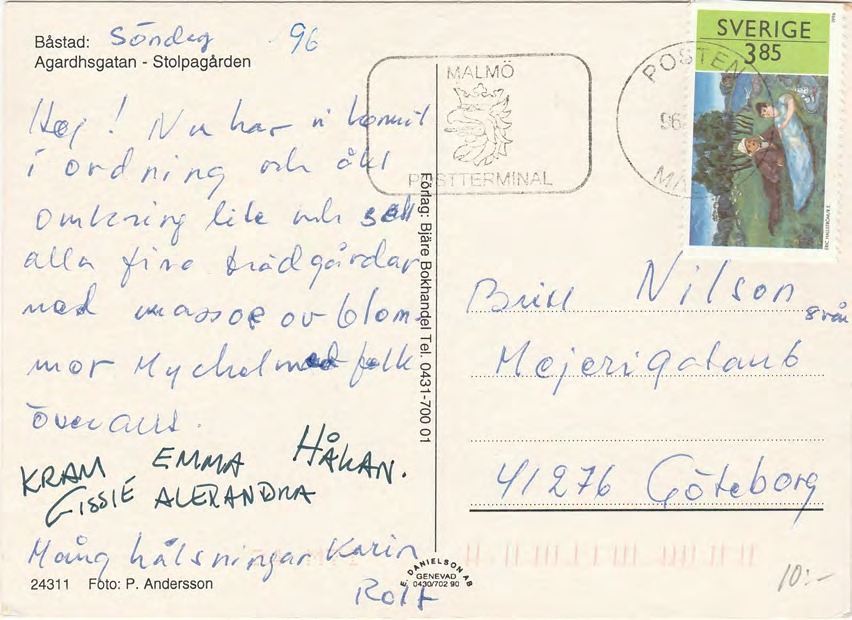 Båstad: Söndag 96
Agardhsgatan - Stolpagården
Hej! Nu har vi kommit
i ordning och åkt
omkring lite och sett
alla fina trädgårdar
med massor av blom-
mor Mychet med folk
överallt.
KRAM EMMA HÅKAN.
CISSIE ALEXANDRA
Många hälsningar Karin
Rolf
24311 Foto: P. Andersson
Förlag: Bjäre Bokhandel Tel. 0431-700 01
E. DANIELSON AB
GENEVAD
0430/702 90
MALMÖ
POSTTERMINAL
POSTEN
96
SVERIGE
3 85
Nilson
Mejerigatan 6
41276 Göteborg
10:-